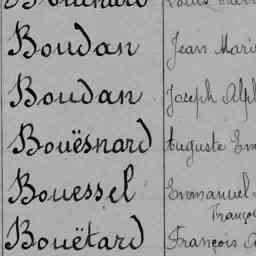 Boudan Jean Mari
Boudan Joseph Alph
Bouësnard Auguste Em
Bouessel Emmanuel
Françoi
Bouëtard François